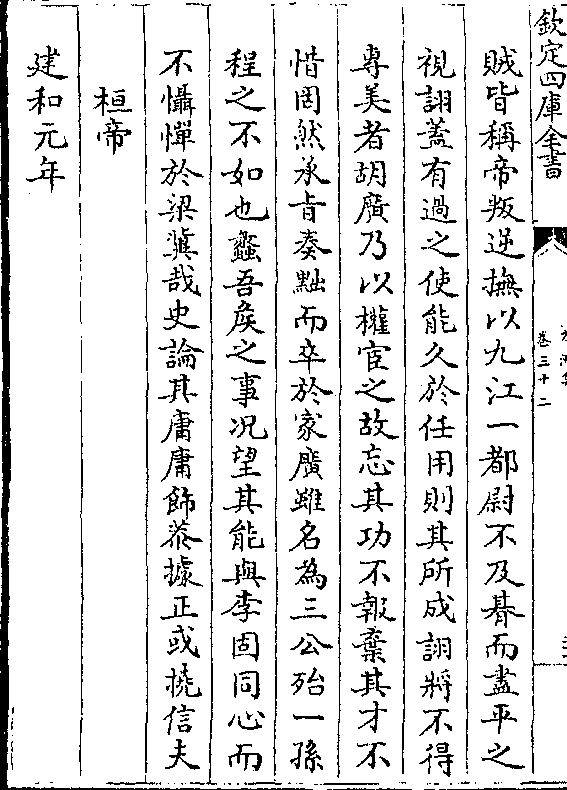 欽定四庫全書
卷三十二
賊皆稱帝叛逆撫以九江一都尉不及朞而盡平之
視詡蓋有過之使能久於任用則其所成詡將不得
專美者胡廣乃以權宦之故忘其功不報棄其才不
惜罔然承㫖奏黜而卒於家廣雖名為三公殆一孫
程之不如也蠡吾矦之事况望其能與李固同心而
不懾憚於梁冀哉史論其庸庸飾㳟據正或橈信夫
桓帝
建和元年